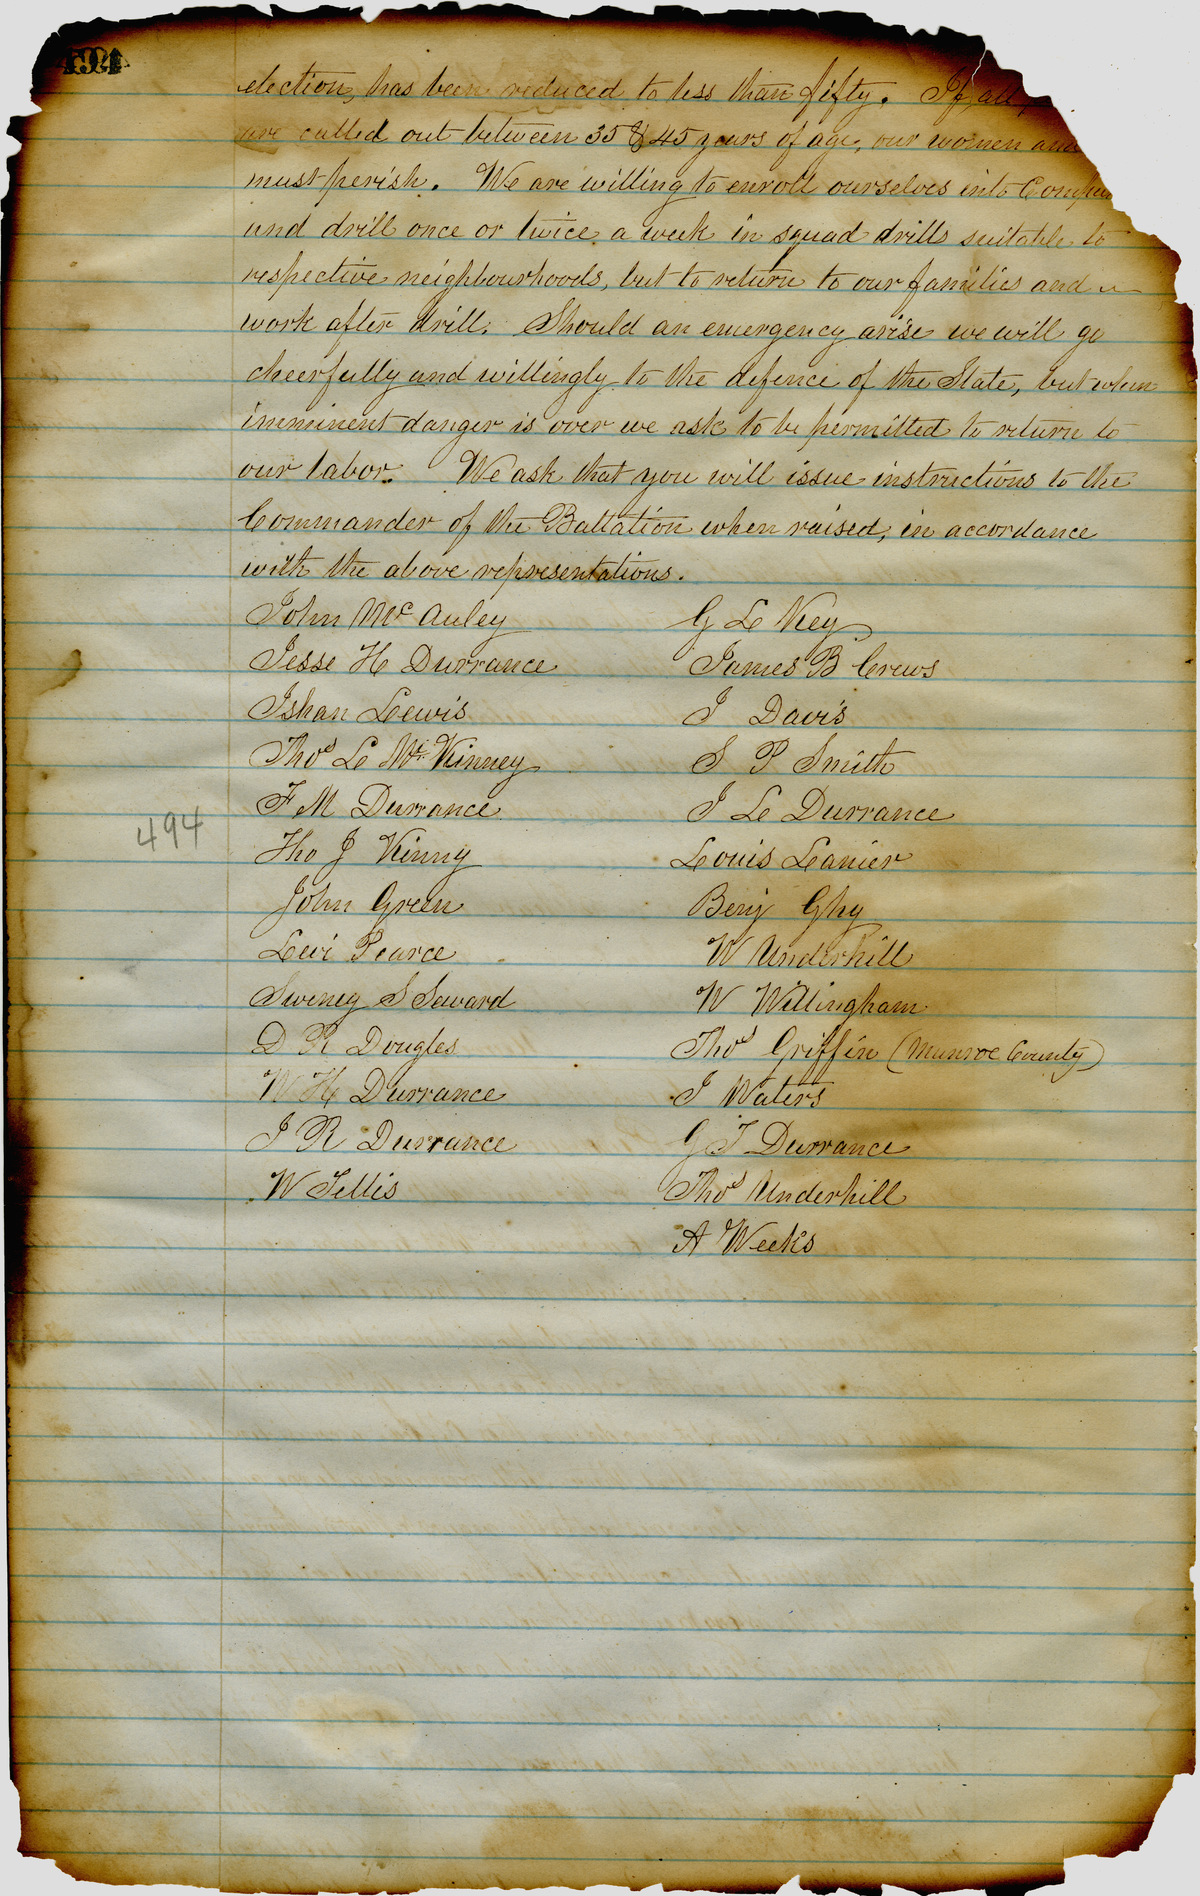 494
election, has been reduced to less than fifty. If all
are called out between 35 & 45 years of age, our women
must perish. We are willing to enroll ourselves into
and drill once or twice a week in squad drills suitable to
respective neighbourhoods, but to return to our families and
work after drill. Should an emergency arise we will go
cheerfully and willingly to the defence of the State, but when
imminent danger is over we ask to be permitted to return to
our labor. We ask that you will issue instructions to the
Commander of the Battation when raised, in accordance
with the above representations.
John McAuley G L Key
Jesse H Durrance James B Crews
Ishan Lewis J Davis
Thos L McKinney S P Smith
F M Durrance J L Durrance
494
Tho J Kinny Louis Lanier
John Green Benj Ghy
Levi Pearce W Underhill
Swiney S Seward W Willingham
D R Dougles Thos Griffin (Munroe County)
W H Durrance J Waters
J R Durrance G T Durrance
W Tellis Thos Underhill
A Weeks